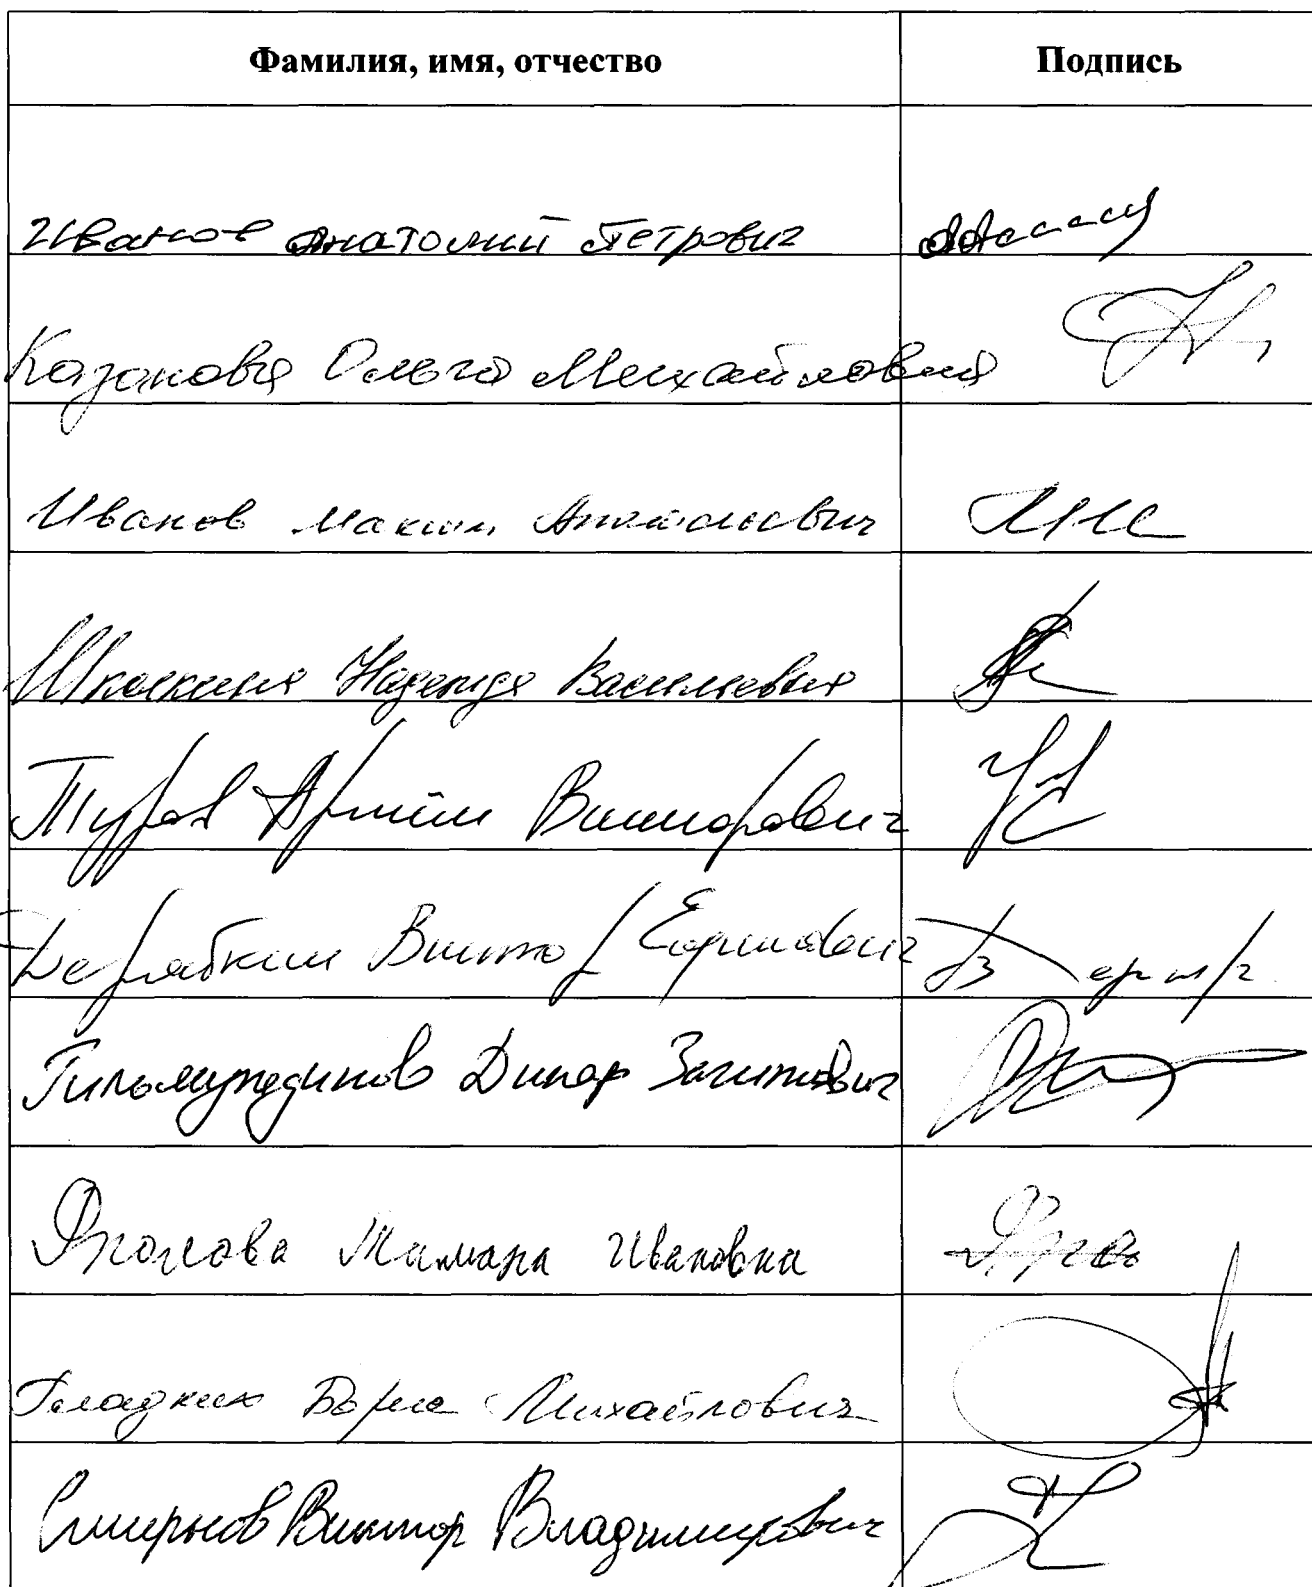 Фамилия, имя, отчество Подпись
Иванов Анатолий Петрович
Казакова Ольга Михайловна
Иванов Максим Анатольевич
Надежда Васильевна
Туров Артём Викторович
Дерябкин Виктор
Гильмутдинов Динар Загитович
Тамара Ивановна
Гладких Борис Михайлович
Смирнов Виктор Владимирович